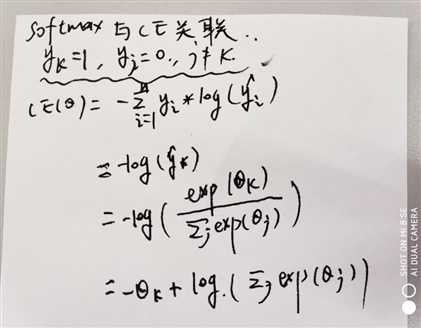 softmax 与 CE 关联..
y_k=1, y_j=0., j≠k.
CE(θ) = -Σ_{i=1}^{n} y_i * log(ŷ_i)
= -log(ŷ_k)
= -log( exp(θ_k) / Σ_j exp(θ_j) )
= -θ_k + log.( Σ_j exp(θ_j) )
SHOT ON MI 8 SE
AI DUAL CAMERA